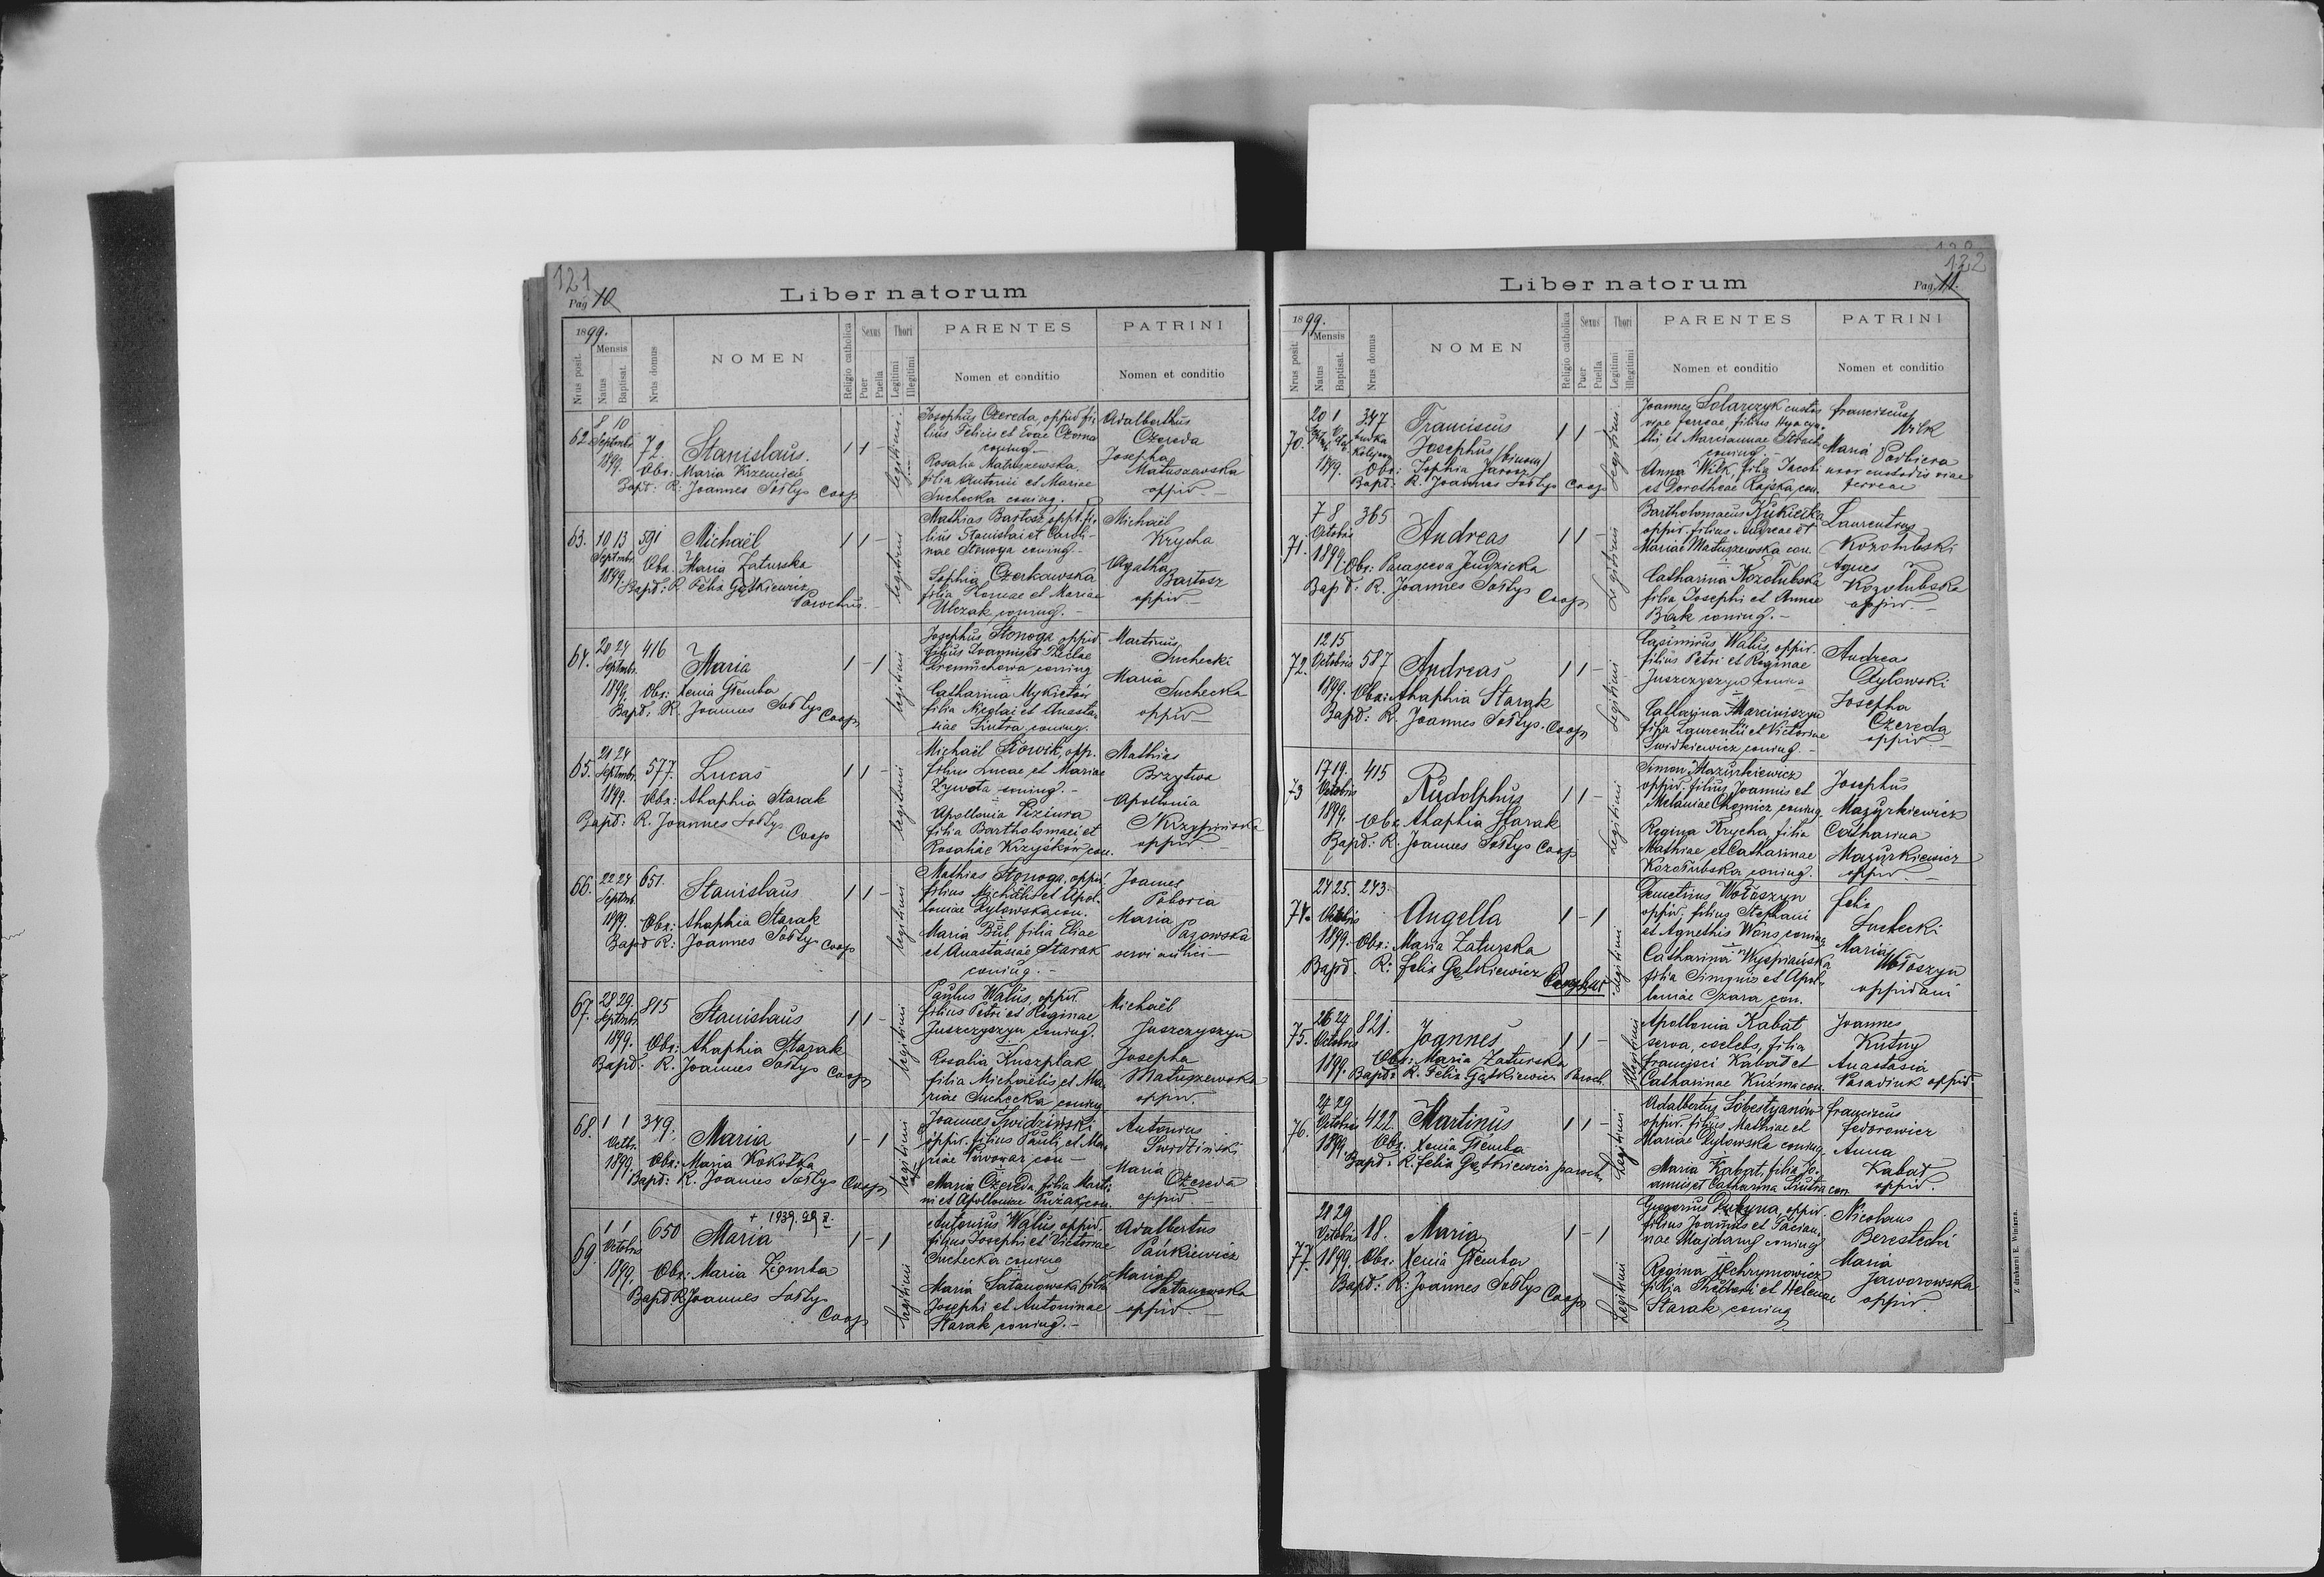 121
Pag 10
Liber natorum
1899.
Nrus posit.
Mensis
Natus
Baptisat.
Nrus domus
NOMEN
Religio catholica
Sexus
Puer
Puella
Thori
Legitimi
Illegitimi
PARENTES
Nomen et conditio
PATRINI
Nomen et conditio
62.
8 10
Septmbr.
1899.
72.
Stanislaus.
Obs: Maria Krzemień
Bapt: R: Joannes Sołtys Coop
1 1 -
legitimi
Josephus Czereda, oppid fi-
lius Felicis et Evae Czorna
coniug. -
Rosalia Matuszewska
filia Antonii et Mariae
Suchecka coniug.
Adalberthus
Czereda
Josepha
Matuszewska
oppid. -
63.
10 13
Septmbr.
1899.
591
Michaël
Obs. Maria Zaturska
Bapt: R. Felix Gątkiewicz
Parochus. -
1 1 -
legitimi
Mathias Bartosz, oppt. fi-
lius Stanislai et Caroli-
nae Stonoga coniug. -
Sophia Czerkawska
filia Romae et Mariae
Ulczak coniug. -
Michaël
Krycha
Agatha
Bartosz
oppid -
64.
20 24
Septmbr.
1899.
416
Maria
Obs: Xenia Głemba
Bapt: R. Joannes Sołtys Coop
1 - 1
legitimi
Josephus Stonoga oppid.
filius Joannis et Theclae
coniug
Catharina Mykietów
filia Nicolai et Anasta-
siae Siutra coniug.
Martinus
Suchecki
Maria
Suchecka
oppid -
65.
21 24
Septmbr.
1899.
577.
Lucas
Obs: Ahaphia Starak
Bapt: R. Joannes Sołtys
Coop
1 1 -
legitimi
Michaël Słowik, opp.
filius Lucae et Mariae
Żywota coniug. -
Apollonia Piziura
filia Bartholomaei et
Rosaliae Krzyśków con.
Mathias
Brzytwa
Apollonia
oppid -
66.
22 24
Septmb.
1899.
651.
Stanislaus
Obs: Ahaphia Starak
Bapt R: Joannes Sołtys Coop
1 1 -
legitimi
Mathias Stonoga, oppid
filius Michaelis et Apol-
loniae Dylowska con.
Maria Bul filia Eliae
et Anastasiae Starak
coniug. -
Joannes
Poboria
Maria
Pazowska
servi aulici -
67.
28 29.
Septmbr.
1899.
815
Stanislaus
Obs: Ahaphia Starak
Bapt: R. Joannes Sołtys Coop
1 1 -
legitimi
Paulus Walus, oppid.
filius Petri et Reginae
Juszczyszyn coniug.
Rosalia Kuszplak
filia Michaëlis et Ma-
riae Suchecka coniug
Michaël
Juszczyszyn
Josepha
Matuszewska
oppid.
68.
1 1
Octbr.
1899.
349.
Maria
Obs: Maria Kokośka
Bapt: R. Joannes Sołtys Coop
1 - 1
legitimi
Joannes Swidziński
oppid. filius Pauli et Ma-
riae Perwowar con -
Maria Czereda, filia Marti-
ni et Apolloniae con.
Antonius
Swidziński
Maria
Czereda
oppid -
69.
1 1
Octobris
1899.
650
+ 1939. 29 X.
Maria
Obs: Maria Ziemba
Bapt R. Joannes Sołtys
Coop
1 - 1
legitimi
Antonius Walus, oppid.
filius Josephi et Victoriae
Suchecka coniug
Maria Satanowska, filia
Josephi et Antoninae
Starak coniug. -
Adalbertus
Pańkiewicz
Maria
Satanowska
oppid -
122
Pag. 11.
Liber natorum
1899.
Nrus posit.
Mensis
Natus
Baptisat.
Nrus domus
NOMEN
Religio catholica
Sexus
Puer
Puella
Thori
Legitimi
Illegitimi
PARENTES
Nomen et conditio
PATRINI
Nomen et conditio
70.
20 1
1899.
347
budka
Kolejowa
Franciscus
Josephus (binom)
Obs: Sophia Jarosz
Bapt: R. Joannes Sołtys Coop
1 1 -
Legitimi
Joannes Solarczyk custos
viae ferreae, filius Hyacyn-
thi et Mariannae
coniug. -
Anna Wilk, filia Jacobi
et Dorotheae Rajska, con.
Franciscus
Wilk
Maria Podbiera
uxor custodis viae
ferreae
71.
7 8
Octobris
1899.
365
Andreas
Obs: Parasceva Jendzicka
Bapt: R. Joannes Sołtys Coop
1 1 -
Legitimi
Bartholomaeus Kukiełka
oppid. filius Andreae et
Mariae Matuszewska con.
Catharina Kozołubska
filia Josephi et Annae
Bżak coniug. -
Laurentius
Kozołubski
Agnes
Kozołubska
oppid. -
72.
12 15
Octobris
1899.
587
Andreas
Obs: Ahaphia Starak
Bapt: R. Joannes Sołtys. Coop
1 1 -
Legitimi
Casimirus Walus, oppid.
filius Petri et Reginae
Juszczyszyn coniug
Catharina Marciniszyn
filia Laurentii et Victoriae
Swidkiewicz coniug. -
Andreas
Dylowski
Josepha
Czereda
oppid -
73
17 19.
Octobris
1899.
415
Rudolphus
Obs. Ahaphia Starak
Bapt: R. Joannes Sołtys Coop
1 1 -
Legitimi
Simon Mazurkiewicz
oppid. filius Joannis et
Melaniae Chomicz, coniug.
Regina Krycha filia
Mathiae et Catharinae
Kozołubska coniug.
Josephus
Mazurkiewicz
Catharina
Mazurkiewicz
oppid -
74.
24 25.
Octobris
1899.
243.
Angella
Obs: Maria Zaturska
Bapt. R: Felix Gątkiewicz
1 - 1
Legitimi
Demetrius Wołoszyn
oppid. filius Stephani
et Agnethis Wons coniug
Catharina Wyspiańska
filia Simonis et Apol-
loniae Szara con.
Felix
Suchecki
Maria
Wołoszyn
oppidani
75.
26 27
Octobris
1899.
821.
Joannes
Obs: Maria Zaturska
Bapt: R. Felix Gątkiewicz Paroch.
1 1 -
Illegitimi
Apollonia Kabat
serva, coelebs, filia
Francisci Kabat et
Catharinae Kuźma con.
Joannes
Kutny
Anastasia
Paradiuk oppid.
76.
27 29
Octobris
1899.
422.
Martinus
Obs. Xenia Głemba
Bapt: R. Felix Gątkiewicz paroch
1 1 -
Legitimi
Adalbertus Sobestyanów
oppid. filius Mathiae et
Mariae Dylowska coniug.
Maria Kabat, filia Jo-
annis et Catharina Siutra con
Franciscus
Fedorowicz
Anna
Kabat
oppid.
77.
28 29
Octobris
1899.
18.
Maria
Obs: Xenia Głemba
Bapt: R: Joannes Sołtys Coop
1 - 1
Legitimi
Gregorius Dutyna, oppid.
filius Joannis et Pacian-
nae Majdany coniug
Regina Ochrymowicz
filia Theodori et Helenae
Starak coniug
Nicolaus
Berestecki
Maria
Jaworowska
oppid.
Z drukarni E. Winiarza.